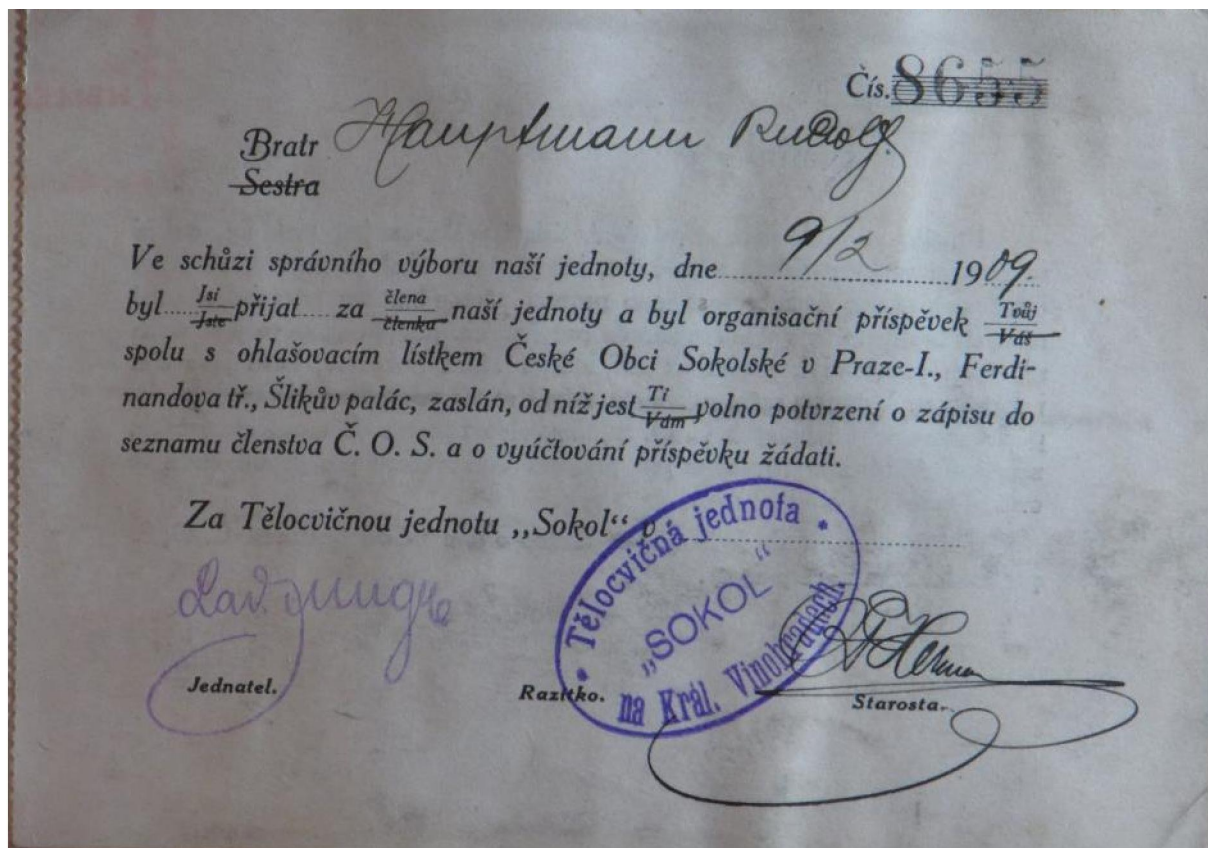 Čís. 8655
Bratr Hauptmann Rudolf.
Sestra
Ve schůzi správního výboru naší jednoty, dne 9/2 1909.
byl Jsi Jste přijat za člena členku naší jednoty a byl organisační příspěvek Tvůj Váš
spolu s ohlašovacím lístkem České Obci Sokolské v Praze-I., Ferdi-
nandova tř., Šlikův palác, zaslán, od níž jest Ti Vám volno potvrzení o zápisu do
seznamu členstva Č. O. S. a o vyúčtování příspěvku žádati.
Za Tělocvičnou jednotu „Sokol“ v
Tělocvičná jednota
„SOKOL“
na Král. Vinohradech.
Lad.
Jednatel.
Razítko.
Starosta.